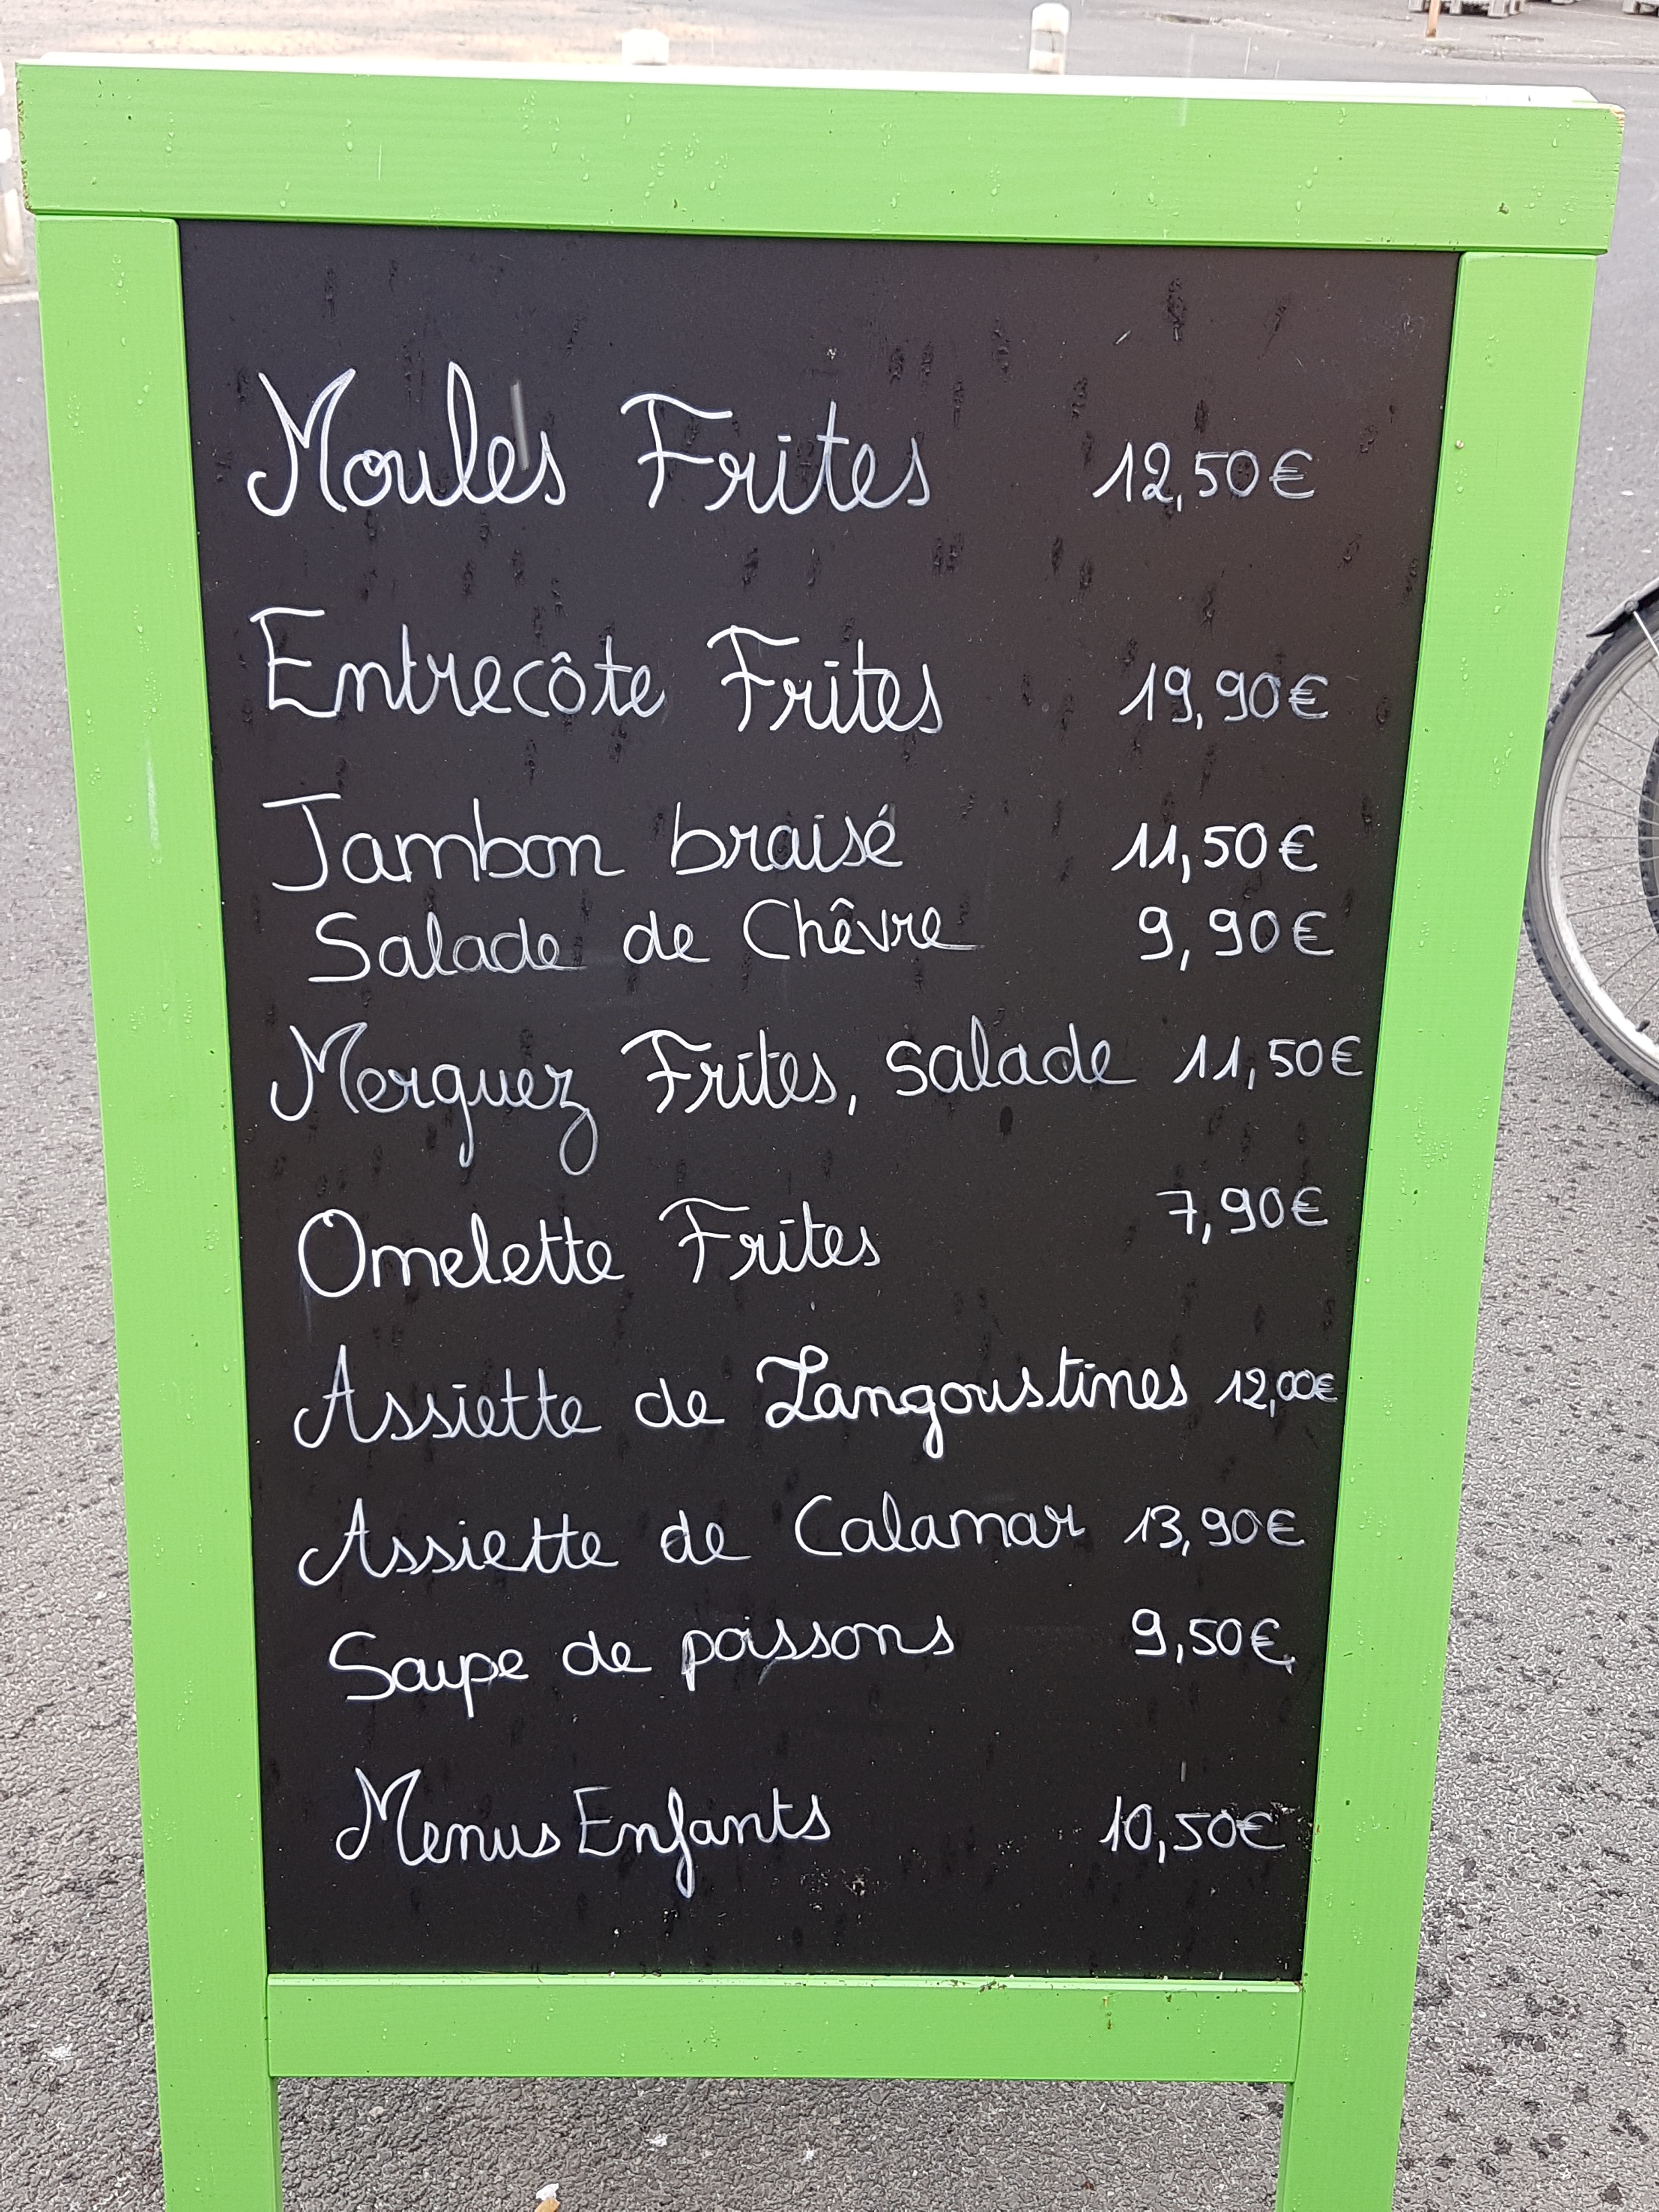 Moules Frites 12,50€
Entrecôte Frites 19,90€
Jambon braisé 11,50€
Salade de Chêvre 9,90€
Merguez Frites, salade 11,50€
Omelette Frites 7,90€
Assiette de Langoustines 12,00€
Assiette de Calamar 13,90€
Soupe de poissons 9,50€
Menus Enfants 10,50€